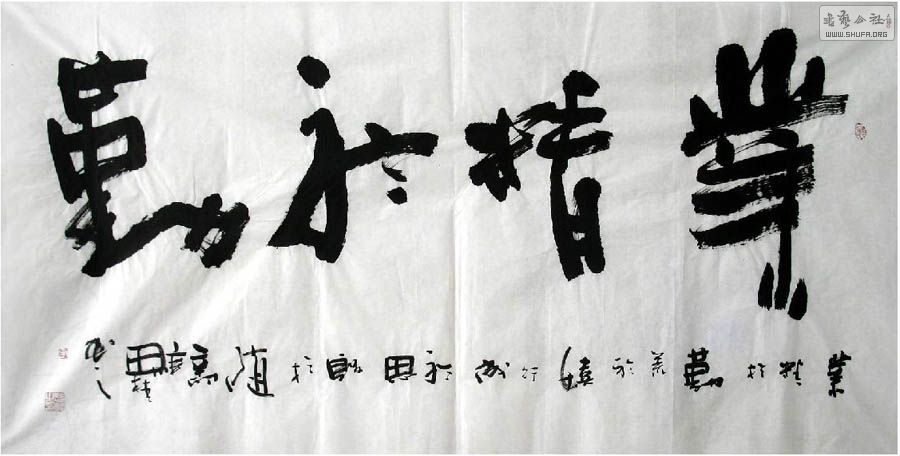 業精於勤
業精於勤荒於嬉行成於思毀於隨
書藝公社
WWW.SHUFA.ORG